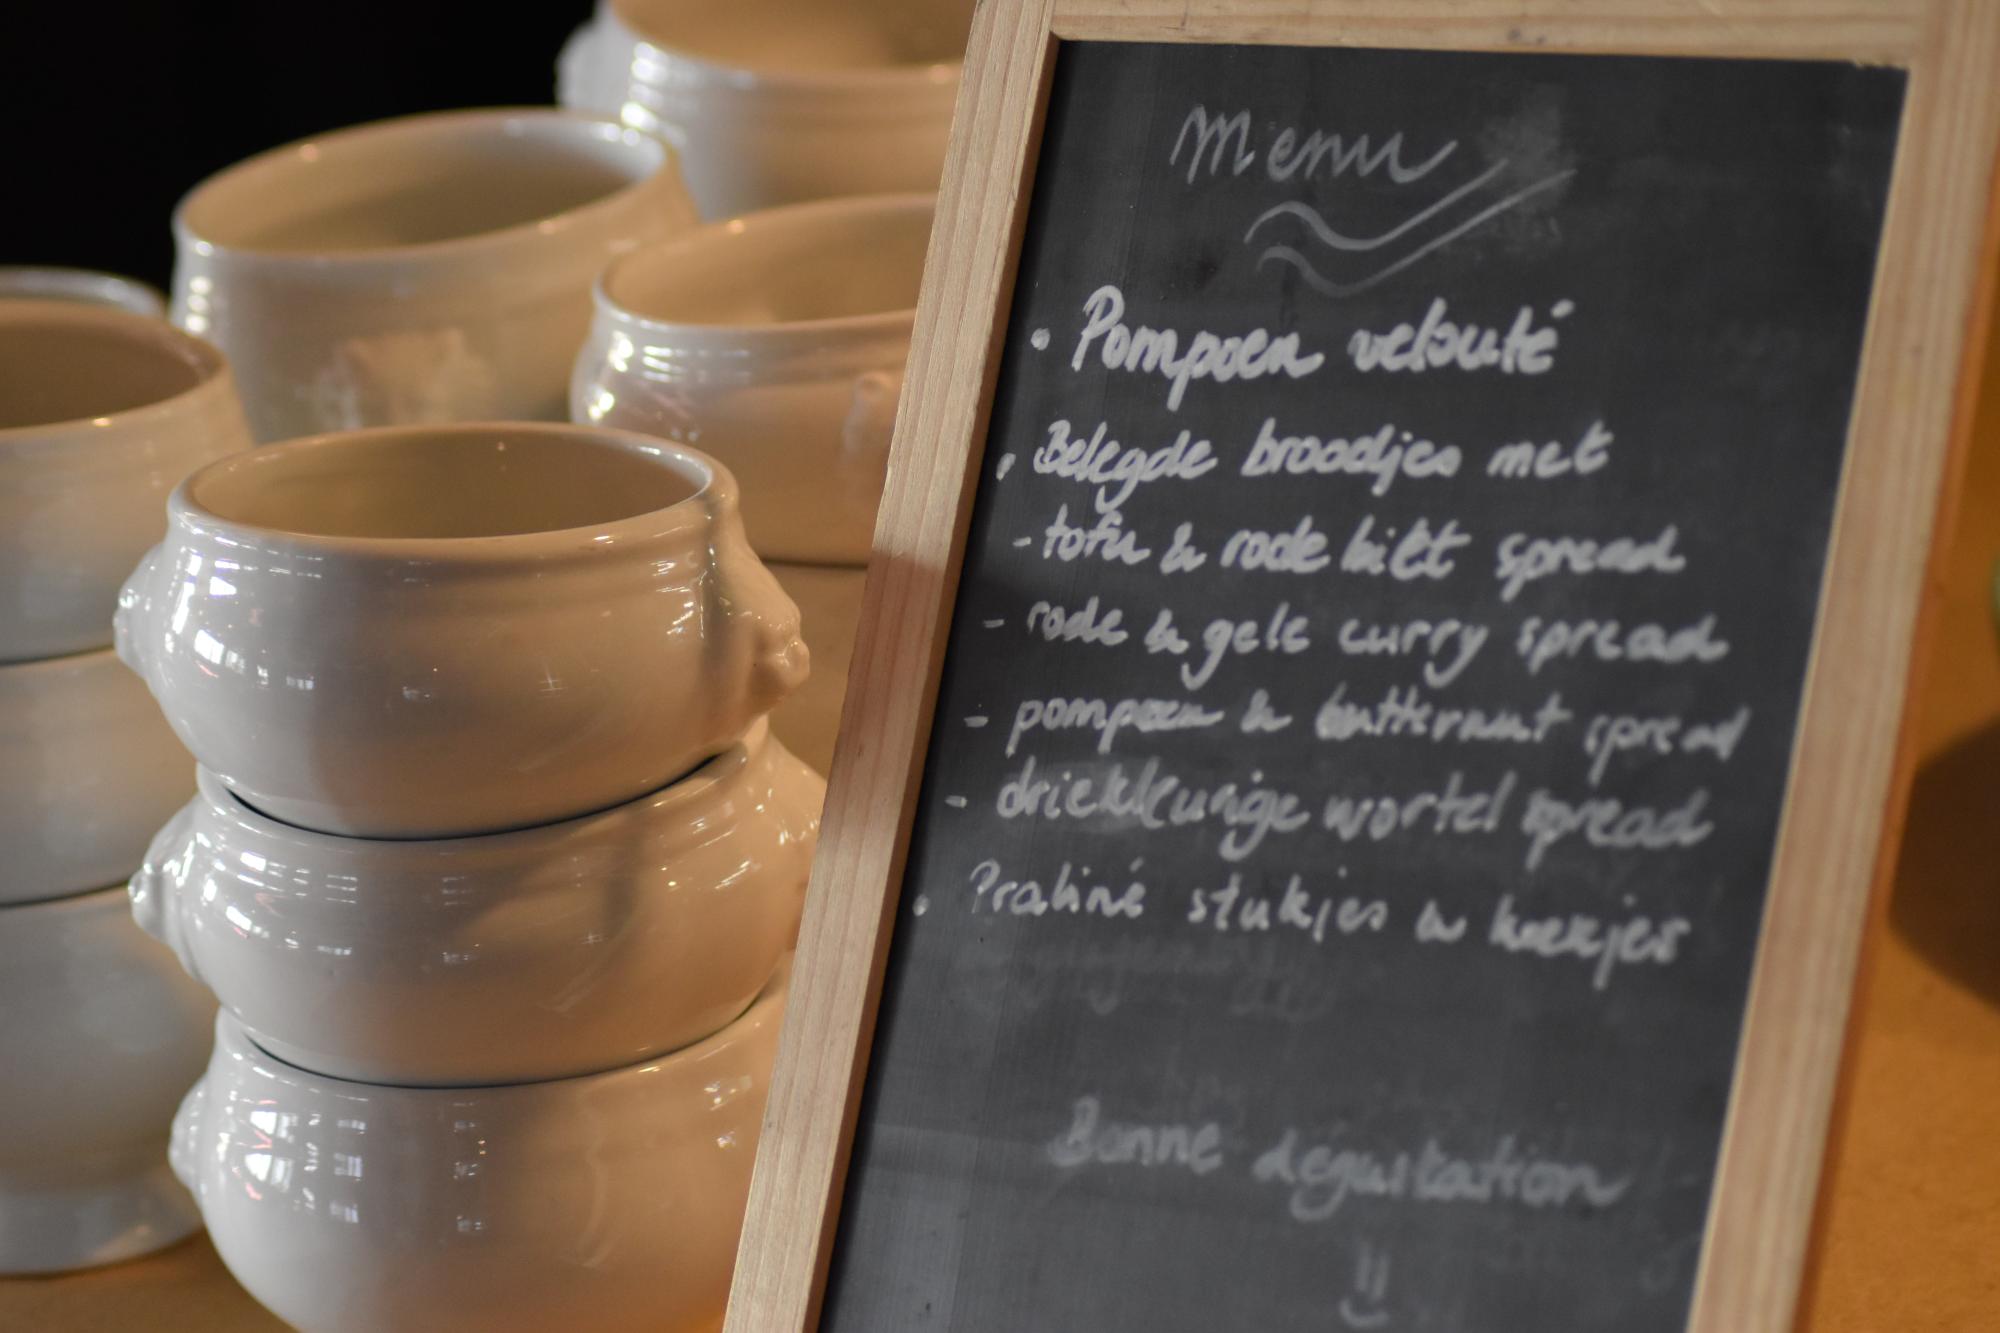 Menu
• Pompoen velouté
• Belegde broodjes met
- tofu & rode biet spread
- rode & gele curry spread
- pompoen & butternut spread
- driekleurige wortel spread
• Praliné stukjes & koekjes
Bonne dégustation